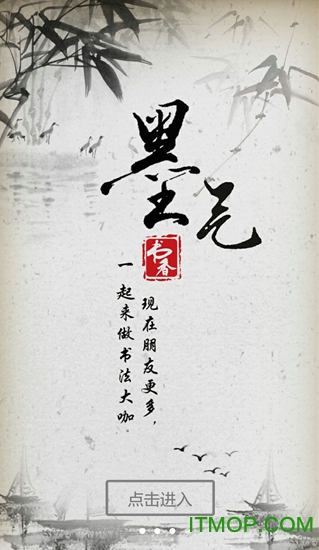 墨气
书香
现在朋友更多，
一起来做书法大咖
点击进入
ITMOP.COM